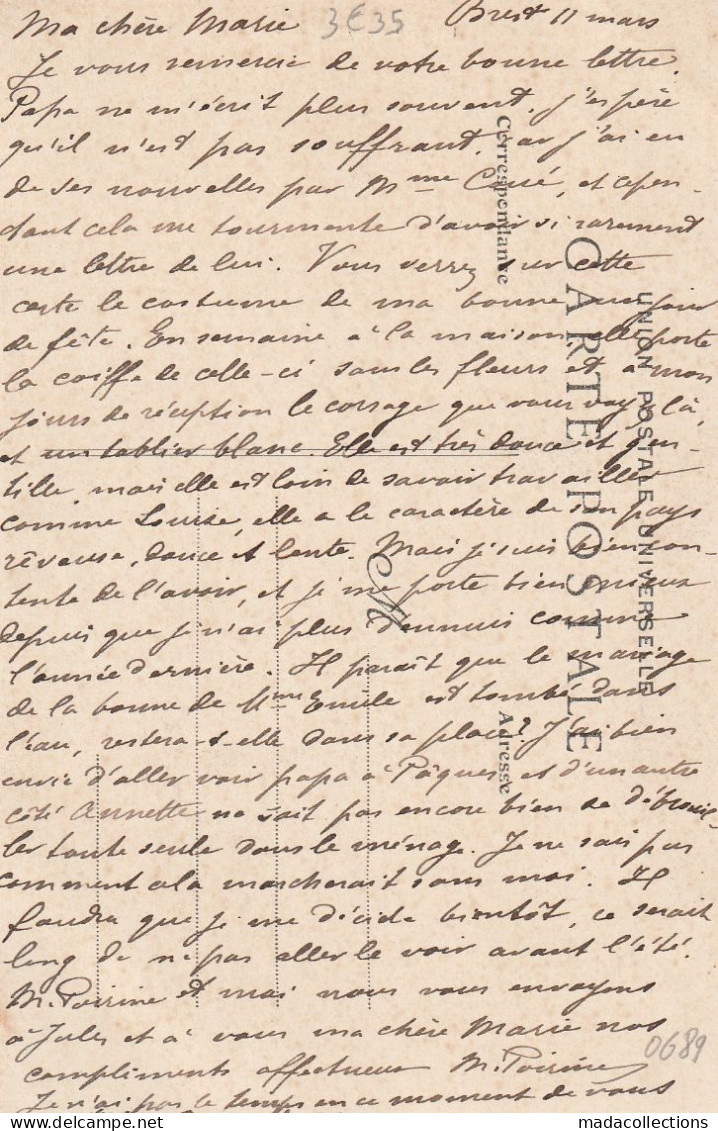 3€35
Brest 11 mars
Ma chère Marie
Je vous remercie de votre bonne lettre.
Papa ne m'écrit plus souvent, j'espère
qu'il n'est pas souffrant, car j'ai eu
de ses nouvelles par Mme , et cepen-
dant cela me tourmente d'avoir si rarement
une lettre de lui. Vous verrez sur cette
carte le costume de ma bonne un jour
de fête. En semaine à la maison, elle porte
la coiffe de celle-ci sans les fleurs et à mon
jours de réception le corsage que vous voyez là,
et un tablier blanc. Elle est très douce et gen-
tille, mais elle est loin de savoir travailler
comme Louise, elle a le caractère de son pays
rêveuse, douce et lente. Mais je suis bien con-
tente de l'avoir, et je me porte bien mieux
depuis que je n'ai plus d'ennuis comme
l'année dernière. Il paraît que le mariage
de la bonne de Mme Emile est tombé dans
l'eau, restera-t-elle dans sa place? J'ai bien
envie d'aller voir papa à Pâques et d'un autre
côté Annette ne sait pas encore bien se débrouil-
ler toute seule dans le ménage. Je ne sais pas
comment cela marcherait sans moi. Il
faudra que je me décide bientôt, ce serait
long de ne pas aller le voir avant l'été.
M. Poirine et moi nous vous envoyons
à Jules et à vous ma chère Marie nos
compliments affectueux M. Poirine
Je n'ai pas le temps en ce moment de vous
0689
Correspondance
CARTE POSTALE
UNION POSTALE UNIVERSELLE
M
Adresse
delcampe.net
madacollections